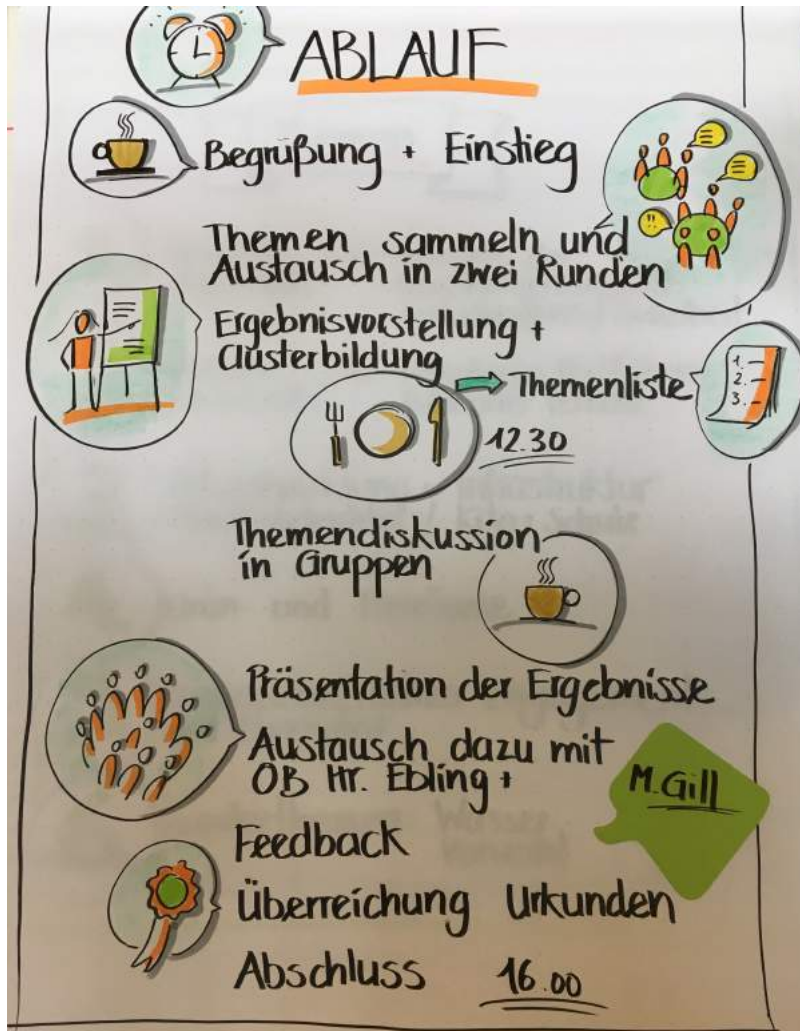 ABLAUF
Begrüßung + Einstieg
Themen sammeln und
Austausch in zwei Runden
Ergebnisvorstellung +
Clusterbildung
→ Themenliste
1.
2.
3.
12.30
Themendiskussion
in Gruppen
Präsentation der Ergebnisse
Austausch dazu mit
OB Hr. Ebling +
M. Gill
Feedback
Überreichung Urkunden
Abschluss 16.00